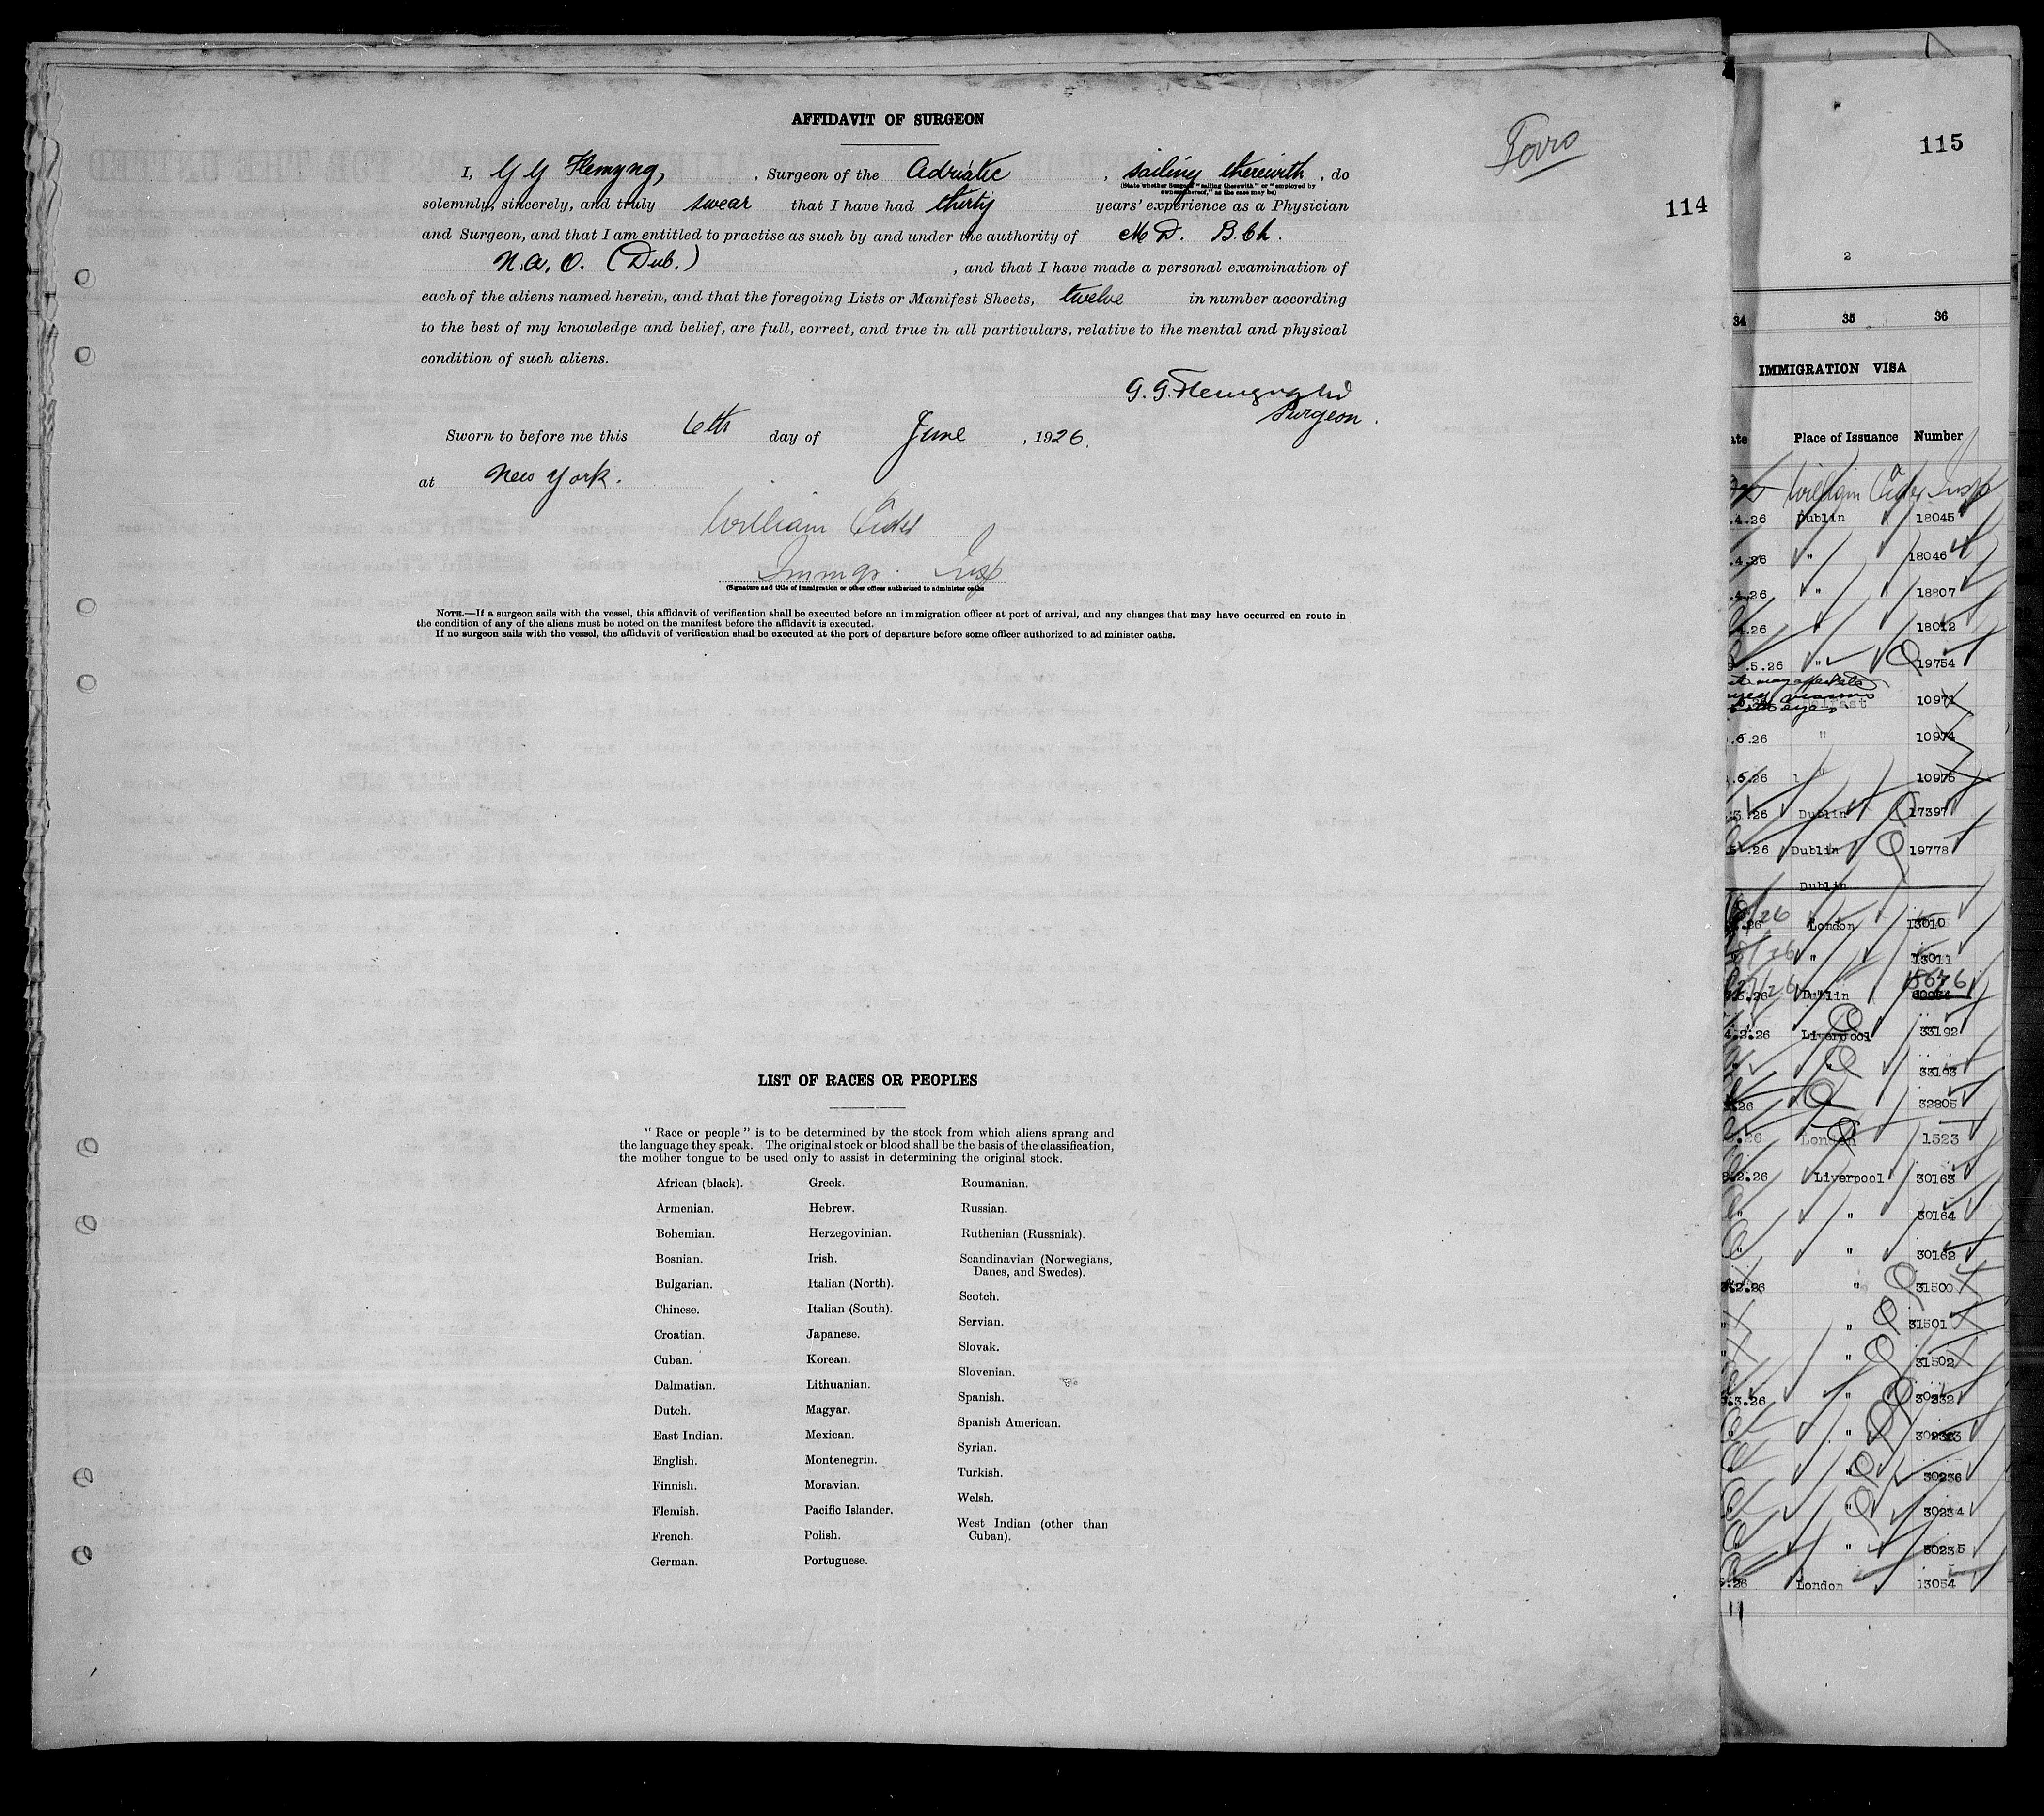 AFFIDAVIT OF SURGEON
114
I, G G Flemyng, , Surgeon of the Adriatic , sailing therewith , do
(State whether Surgeon "sailing therewith" or "employed by
owners thereof," as the case may be)
solemnly, sincerely, and truly swear that I have had thirty years' experience as a Physician
and Surgeon, and that I am entitled to practise as such by and under the authority of M D. B.Ch.
(Dub.) , and that I have made a personal examination of
each of the aliens named herein, and that the foregoing Lists or Manifest Sheets, twelve in number according
to the best of my knowledge and belief, are full, correct, and true in all particulars, relative to the mental and physical
condition of such aliens.
Surgeon.
Sworn to before me this 6th day of June , 1926.
at New York.
William
Immgr. Insp
(Signature and title of immigration or other officer authorized to administer oaths
NOTE.—If a surgeon sails with the vessel, this affidavit of verification shall be executed before an immigration officer at port of arrival, and any changes that may have occurred en route in
the condition of any of the aliens must be noted on the manifest before the affidavit is executed.
If no surgeon sails with the vessel, the affidavit of verification shall be executed at the port of departure before some officer authorized to administer oaths.
LIST OF RACES OR PEOPLES
"Race or people" is to be determined by the stock from which aliens sprang and
the language they speak. The original stock or blood shall be the basis of the classification,
the mother tongue to be used only to assist in determining the original stock.
African (black).
Armenian.
Bohemian.
Bosnian.
Bulgarian.
Chinese.
Croatian.
Cuban.
Dalmatian.
Dutch.
East Indian.
English.
Finnish.
Flemish.
French.
German.
Greek.
Hebrew.
Herzegovinian.
Irish.
Italian (North).
Italian (South).
Japanese.
Korean.
Lithuanian.
Magyar.
Mexican.
Montenegrin.
Moravian.
Pacific Islander.
Polish.
Portuguese.
Roumanian.
Russian.
Ruthenian (Russniak).
Scandinavian (Norwegians,
Danes, and Swedes).
Scotch.
Servian.
Slovak.
Slovenian.
Spanish.
Spanish American.
Syrian.
Turkish.
Welsh.
West Indian (other than
Cuban).
115
2
34 35 36
IMMIGRATION VISA
Place of Issuance Number
William Insp
.4.26 Dublin 18045
.4.26 " 18046
.4.26 " 18807
.26 " 18012
.5.26 " 19754
10971
.6.26 " 10974
.6.26 " 10975
.3.26 Dublin 17397
.26 Dublin 19778
Dublin
.26 London 13010
" 13011
.26 Dublin
.2.26 Liverpool 33192
" 33193
.26 32805
.26 London 1523
.2.26 Liverpool 30163
" " 30164
" " 30162
.2.26 " 31500
" " 31501
" " 31502
.3.26 " 30232
"
" 30236
" 30234
" 30235
.26 London 13054